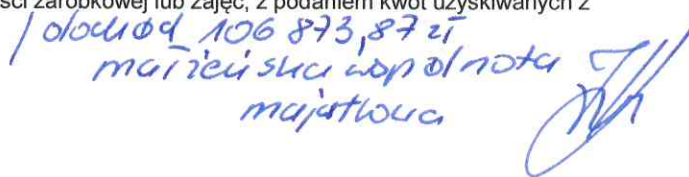 ści zarobkowej lub zajęć, z podaniem kwot uzyskiwanych z
dochód 106 873,87 zł
małżeńska wspólnota
majątkowa